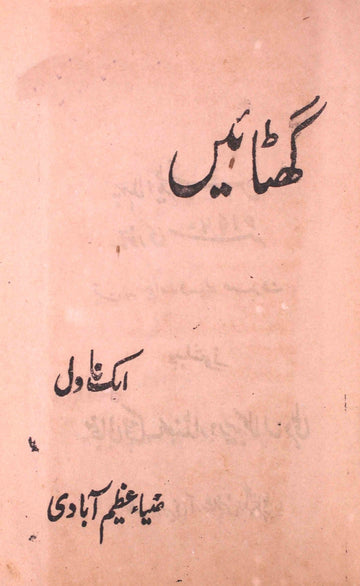 گھٹائیں
ایک ناول
ضیاء عظیم آبادی